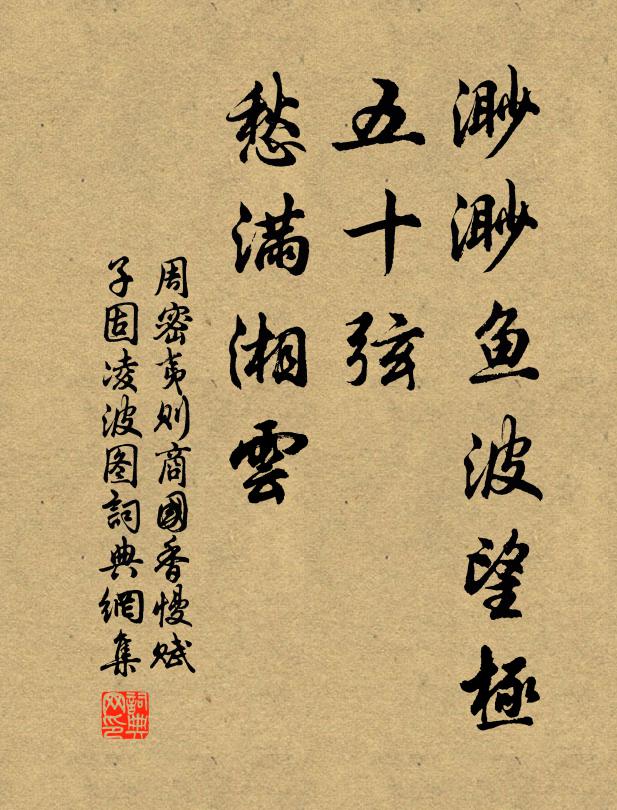 渺渺魚波望極
五十弦
愁滿湘雲
周密夷则商國香慢赋
子固凌波图詞典網集
詞典网印